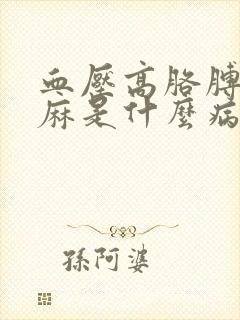 血壓高胳膊
麻是什麼病
孫阿婆